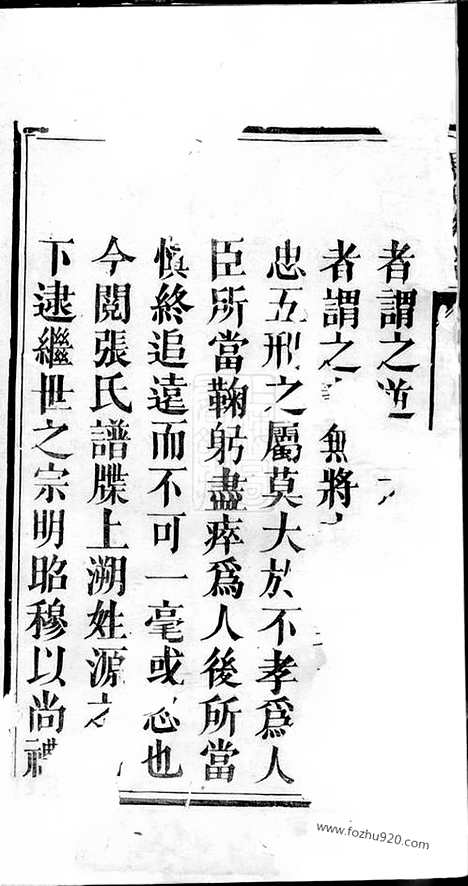 者謂之道
者謂之 無將
忠五刑之屬莫大於不孝爲人
臣所當鞠躬盡瘁爲人後所當
慎終追遠而不可一毫或忘也
今閱張氏譜牒上溯姓源之
下逮繼世之宗明昭穆以尚禮
www.fozhu920.com